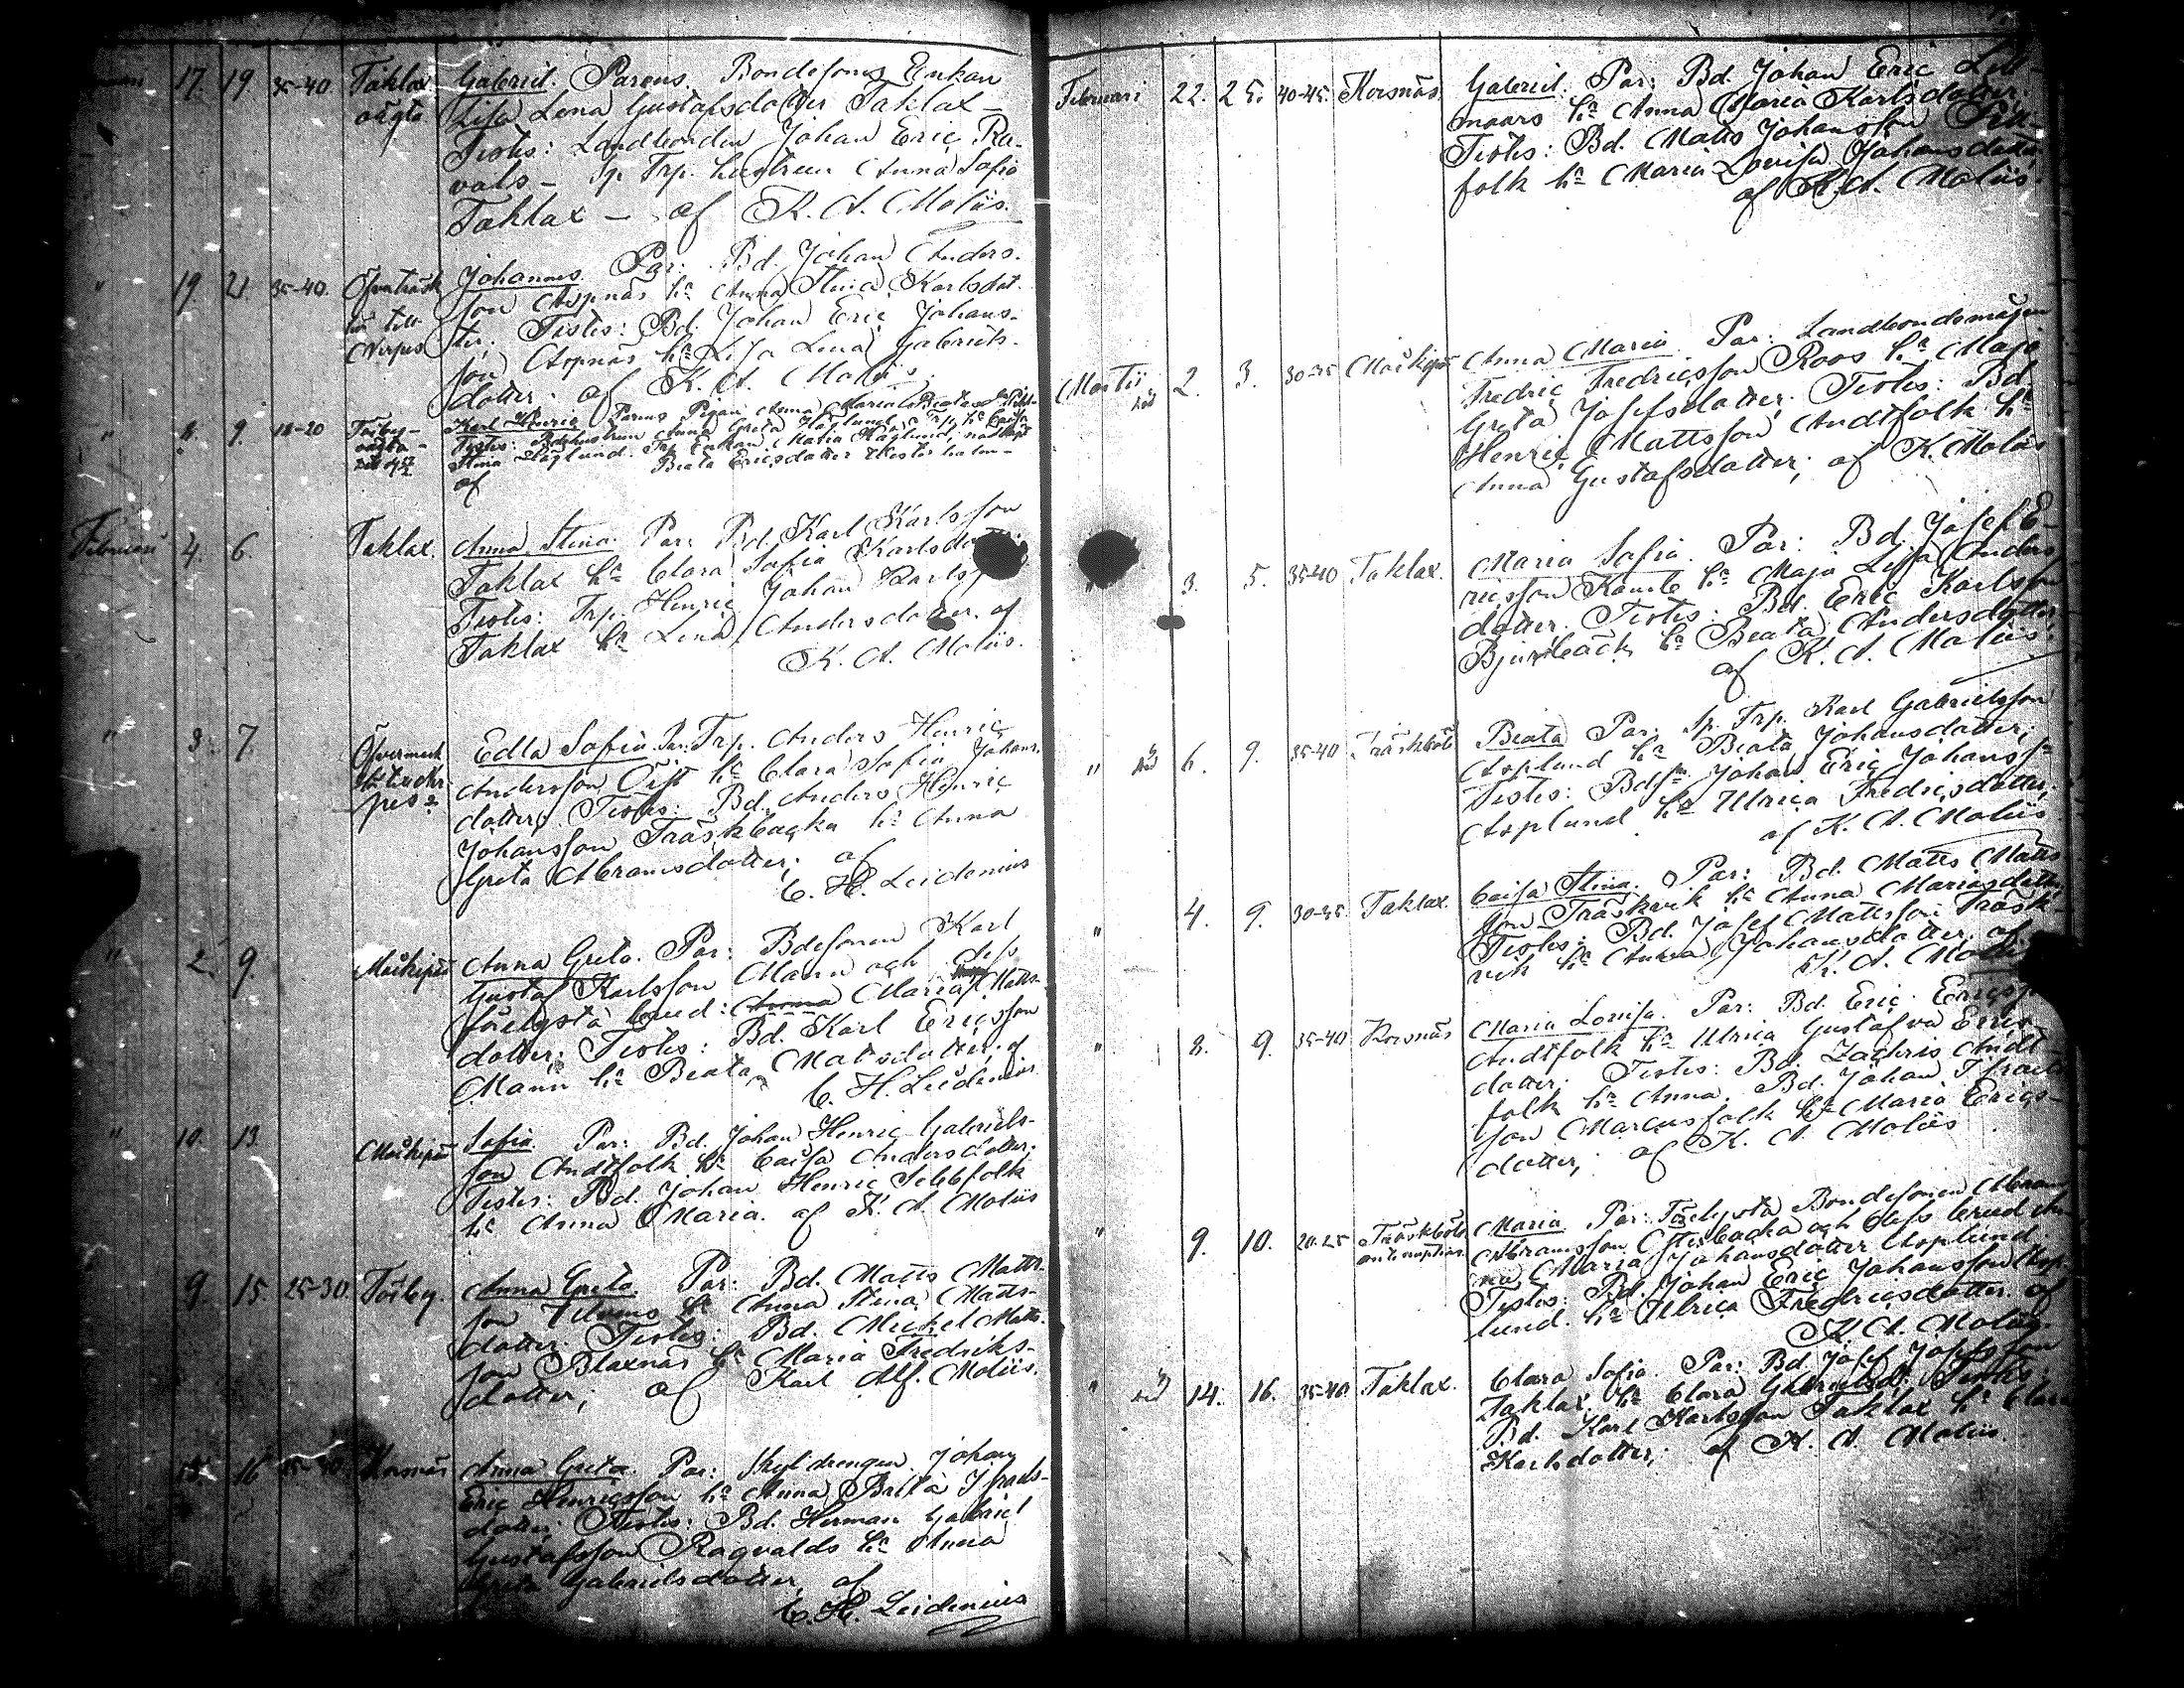 17. 19. 35-40 Taklax oägta
Gabriel. Parens Bondesons Enkan
Lisa Lena Gustafsdotter Taklax –
Testes: Landbonden Johan Eric Ra-
vals – Sp. Trp. hustrun Anna Sofia
Taklax – af K. A. Moliis.
" 19. 21. 35-40.
Johannes. Par: Bd. Johan Anders-
son Aspnäs hn Anna Stina Karlsdot-
ter; Testes: Bd. Johan Eric Johans-
son Aspnäs hn Lisa Lena Gabriels-
dotter. af K. A. Moliis.
" 8. 9. 18-20 Töiby- oägta
Karl Henric Parens Pigan Anna Maria Beata
Testes: Anna Greta Höglund, Trp. hn Caisa
Stina Höglund. Trp. Enkan Maria Höglund, nöddöpt
af Beata Ericsdotter
Februari 4. 6. Taklax.
Anna Stina. Par: Bd. Karl Karlsson
Taklax hn Clara Sofia Karlsdotter
Testes: Trp. Henric Johan Karlsson
Taklax hn Lena Andersdotter. af
K. A. Moliis.
" 3. 7.
Edla Sofia. Par: Trp. Anders Henric
Andersson Öist hn Clara Sofia Johans-
dotter; Testes: Bd. Anders Henric
Johansson Träskbacka hn Anna
Greta Abramsdotter; af
C. H. Leidenius
" 2. 9. Molkipii
Anna Greta. Par: Bdesonen Karl
Gustaf Karlsson Mann och dess
förlofsta brud: Anna Maria Matts-
dotter; Testes: Bd. Karl Ericsson
Mann hn Beata Matsdotter, af
C. H. Leidenius
" 10. 13. Molkipii
Sofia. Par: Bd. Johan Henric Gabriels-
son Andtfolk hn Caisa Andersdotter;
Testes: Bd. Johan Henric Sebbfolk
hn Anna Maria. af K. A. Moliis
9. 15. 25-30. Töiby.
Anna Greta. Par: Bd. Matts Matts-
son hn Anna Stina Matts-
dotter. Testes: Bd. Mickel Matts-
son Blaxnäs hn Maria Fredriks-
dotter; af Karl Alf. Moliis.
15. 16. Korsnäs
Anna Greta. Par: Johan
Eric Henricsson hn Anna Brita Israels-
dotter, Testes: Bd. Herman Gabriel
Gustafsson Ragvalds hn Anna
Greta Gabrielsdotter, af
C. H. Leidenius
Februari 22. 25. 40-45. Korsnäs.
Gabriel. Par: Bd. Johan Eric Lill-
maars hn Anna Maria Karlsdotter.
Testes: Bd. Matts Johansson
folk hn Maria Lovisa Johansdotter
af K. A. Moliis.
Martii 2. 3. 30-35 Molkipii
Anna Maria. Par: Landbondemågen
Fredric Fredricsson Roos hn Maja
Greta Josefsdotter; Testes: Bd.
Henric Mattsson Andtfolk hn
Anna Gustafsdotter; af K. Moliis
" 3. 5. 35-40 Taklax.
Maria Sofia. Par: Bd. Josef E-
ricsson Kamb hn Maja Lisa Anders-
dotter. Testes: Bd. Eric Karlsson
Bjurbäck hn Beata Andersdotter,
af K. A. Moliis.
" 6. 9. 35-40 Träskböle
Beata Par: Sp. Trp. Karl Gabrielsson
Asplund hn Beata Johansdotter;
Testes: Bdsn Johan Eric Johanssn
Asplund hn Ulrica Fredricsdotter,
af K. A. Moliis
" 4. 9. 30-35. Taklax.
Caisa Stina. Par: Bd. Matts Matts-
son Träskvik hn Anna Mariasdotter
Testes: Bd. Josef Mattsson Träsk-
vik hn Anna Johansdotter. af.
K. A. Moliis
" 8. 9. 35-40 Korsnäs
Maria Lovisa. Par: Bd. Eric Ericsson
Andtfolk hn Ulrica Gustafva Erics-
dotter; Testes: Bd. Zachris Andt-
folk hn Anna. Bd. Johan Israels-
son Marcusfolk hn Maria Erics-
dotter; af K. A. Moliis
" 9. 10. 20-25 Träskböle
Maria. Par: Förlofsta Bondesonen Abram
Abramsson Österbacka och dess brud An-
na Maria Johansdotter Asplund.
Testes: Bd. Johan Eric Johansson Asp-
lund. hn Ulrica Fredricsdotter. af
K. A. Moliis.
" 14. 16. 35-40 Taklax.
Clara Sofia. Par: Bd. Josef Josefsson
Taklax. hn Clara Gabrielsd. Testes:
Bd. Karl Karlsson Taklax hn Clara
Karlsdotter; af K. A. Moliis.